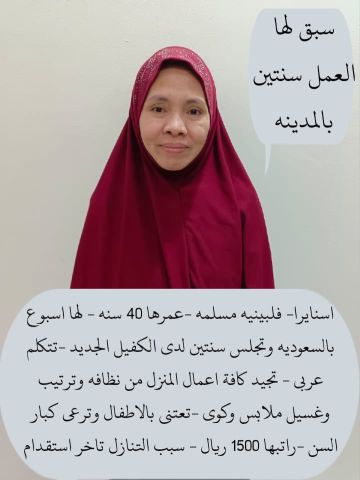 سبق لها
العمل سنتين
بالمدينه
اسنايرا- فلبينيه مسلمه -عمرها 40 سنه - لها اسبوع
بالسعوديه وتجلس سنتين لدى الكفيل الجديد -تتكلم
عربى - تجيد كافة اعمال المنزل من نظافه وترتيب
وغسيل ملابس وكوى -تعتنى بالاطفال وترعى كبار
السن -راتبها 1500 ريال - سبب التنازل تاخر استقدام